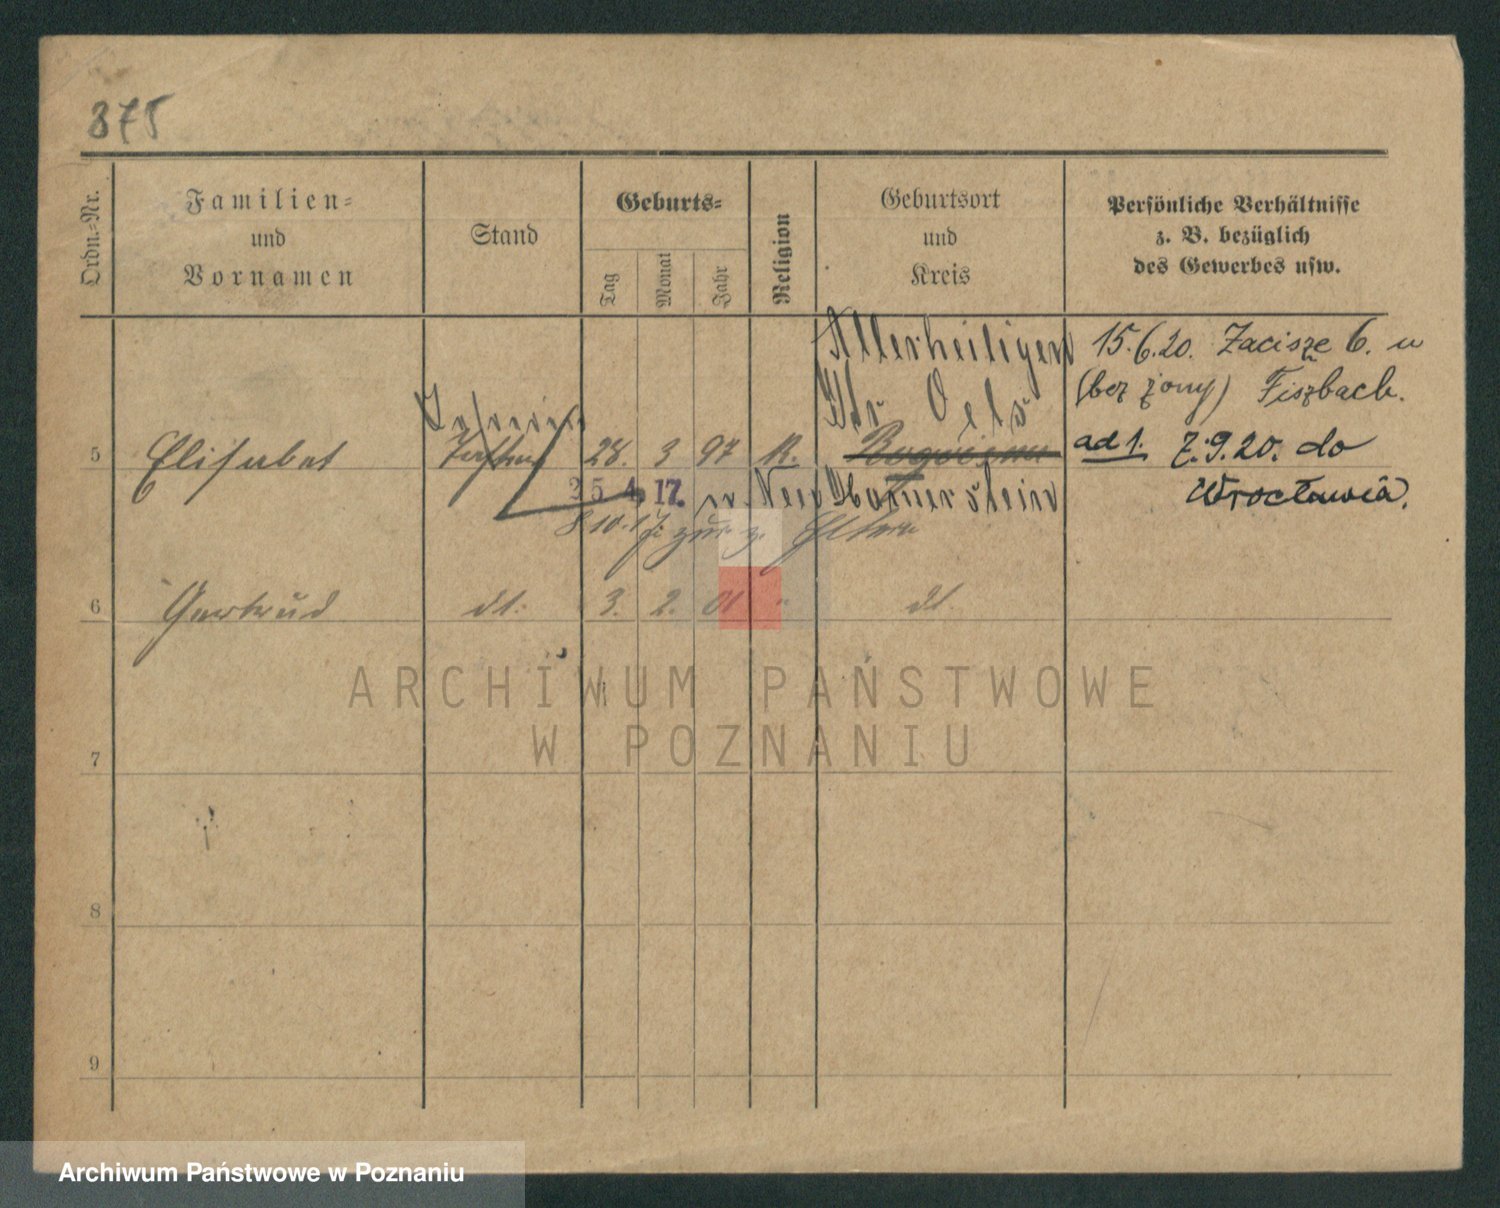 875
Ordn.-Nr.
Familien-
und
Vornamen
Stand
Geburts-
Tag
Monat
Jahr
Religion
Geburtsort
und
Kreis
Persönliche Verhältnisse
z. B. bezüglich
des Gewerbes usw.
Allerheiligen
Oels
15.6.20. Zacisze 6. u
(bez żony) Fiszbach.
5 Elisabet Tochter 28. 3 97 K.
ad 1. 7.9.20. do
Wrocławia.
25 4. 17. n. Neu
8 10.17. zur. z. Eltern
6 Gertrud dt. 3. 2. 01 " dt.
7
8
9
ARCHIWUM PAŃSTWOWE
W POZNANIU
Archiwum Państwowe w Poznaniu